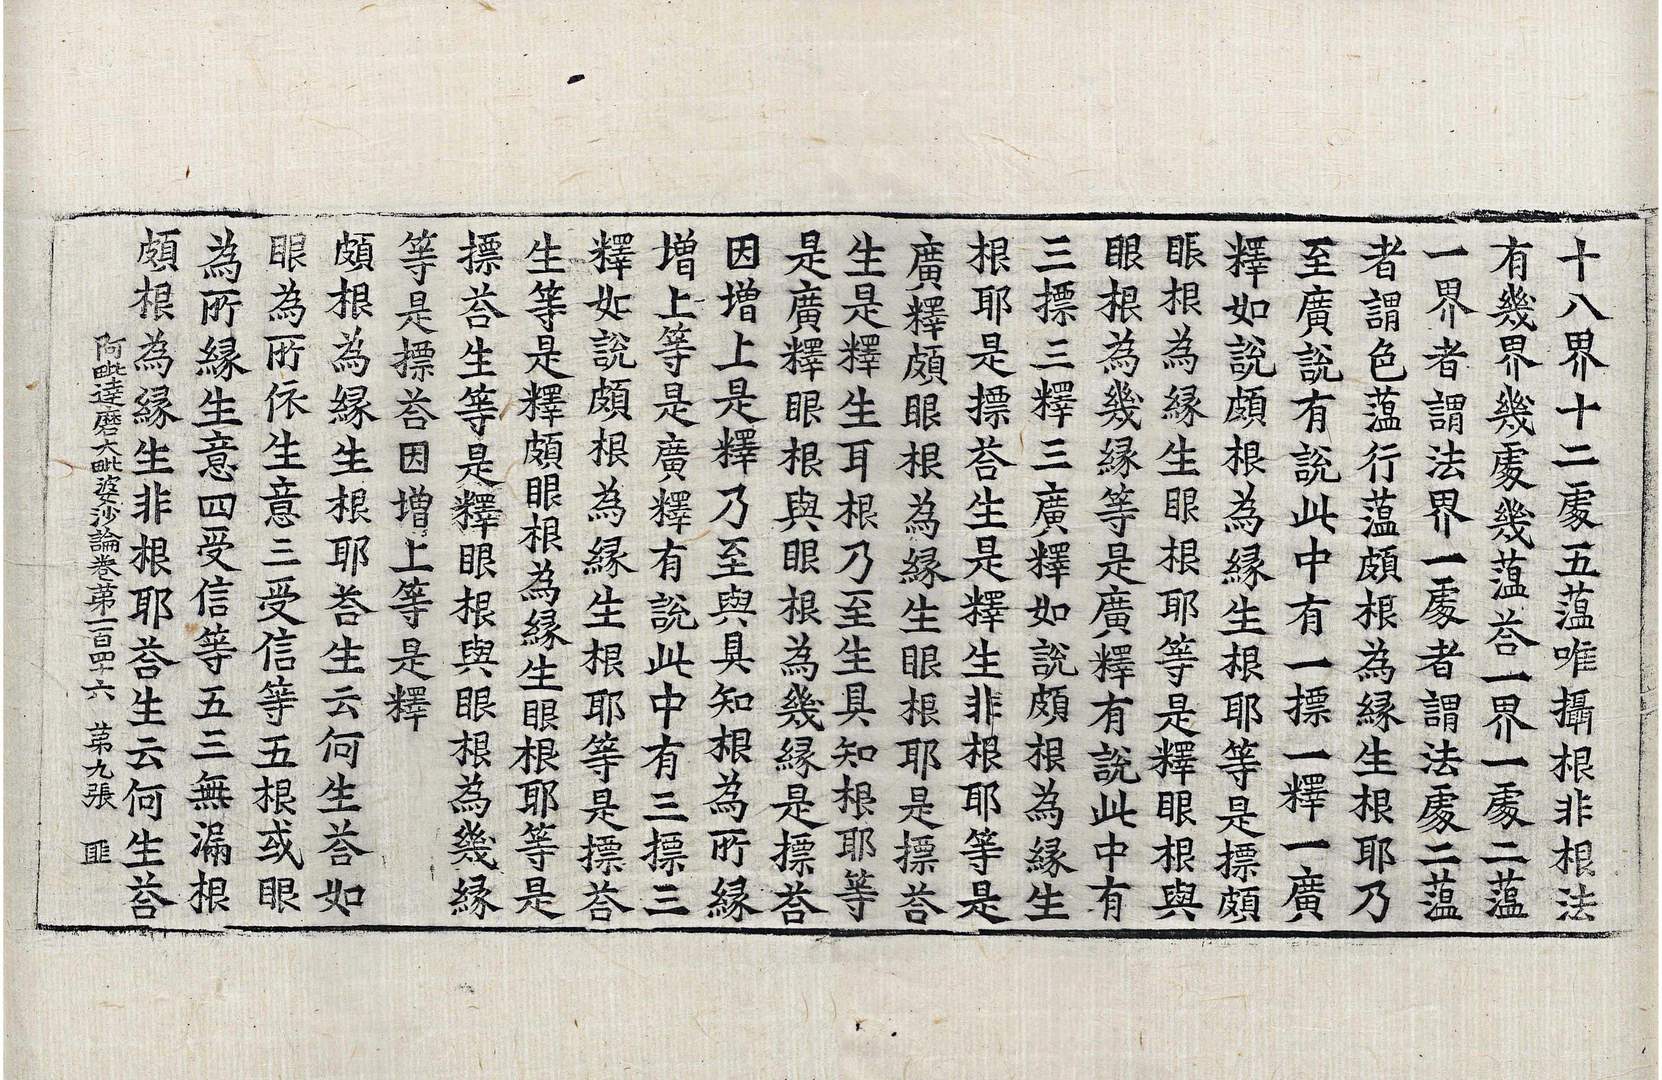 十八界十二處五蘊唯攝根非根法
有幾界幾處幾蘊荅一界一處二蘊
一界者謂法界一處者謂法處二蘊
者謂色蘊行蘊頗根為縁生根耶乃
至廣說有說此中有一摽一釋一廣
釋如說頗根為縁生根耶等是摽頗
眼根為縁生眼根耶等是釋眼根與
眼根為幾縁等是廣釋有說此中有
三摽三釋三廣釋如說頗根為縁生
根耶是摽荅生是釋生非根耶等是
廣釋頗眼根為縁生眼根耶是摽荅
生是釋生耳根乃至生具知根耶等
是廣釋眼根與眼根為幾縁是摽荅
因増上是釋乃至與具知根為所縁
増上等是廣釋有說此中有三摽三
釋如說頗根為縁生根耶等是摽荅
生等是釋頗眼根為縁生眼根耶等是
摽荅生等是釋眼根與眼根為幾縁
等是摽荅因増上等是釋
頗根為縁生根耶荅生云何生荅如
眼為所依生意三受信等五根或眼
為所縁生意四受信等五三無漏根
頗根為縁生非根耶荅生云何生荅
阿毗達磨大毗婆沙論卷第一百四十六 第九張 匪